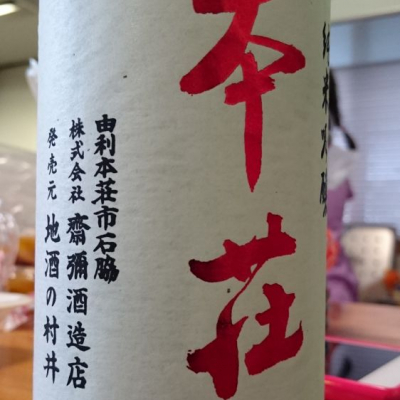 純米吟醸
本荘
由利本荘市石脇
株式会社 齋彌酒造店
発売元 地酒の村井